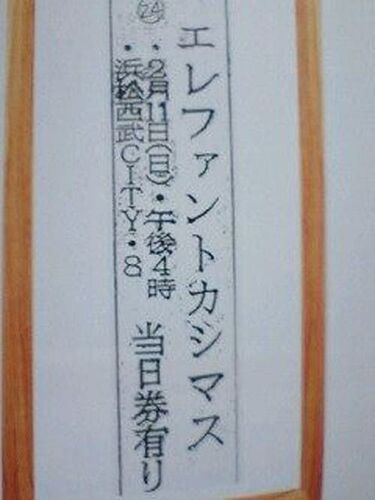 ㉔
エレファントカシマス
・2月11日(日)・午後4時
・浜松西武CITY・8
当日券有り